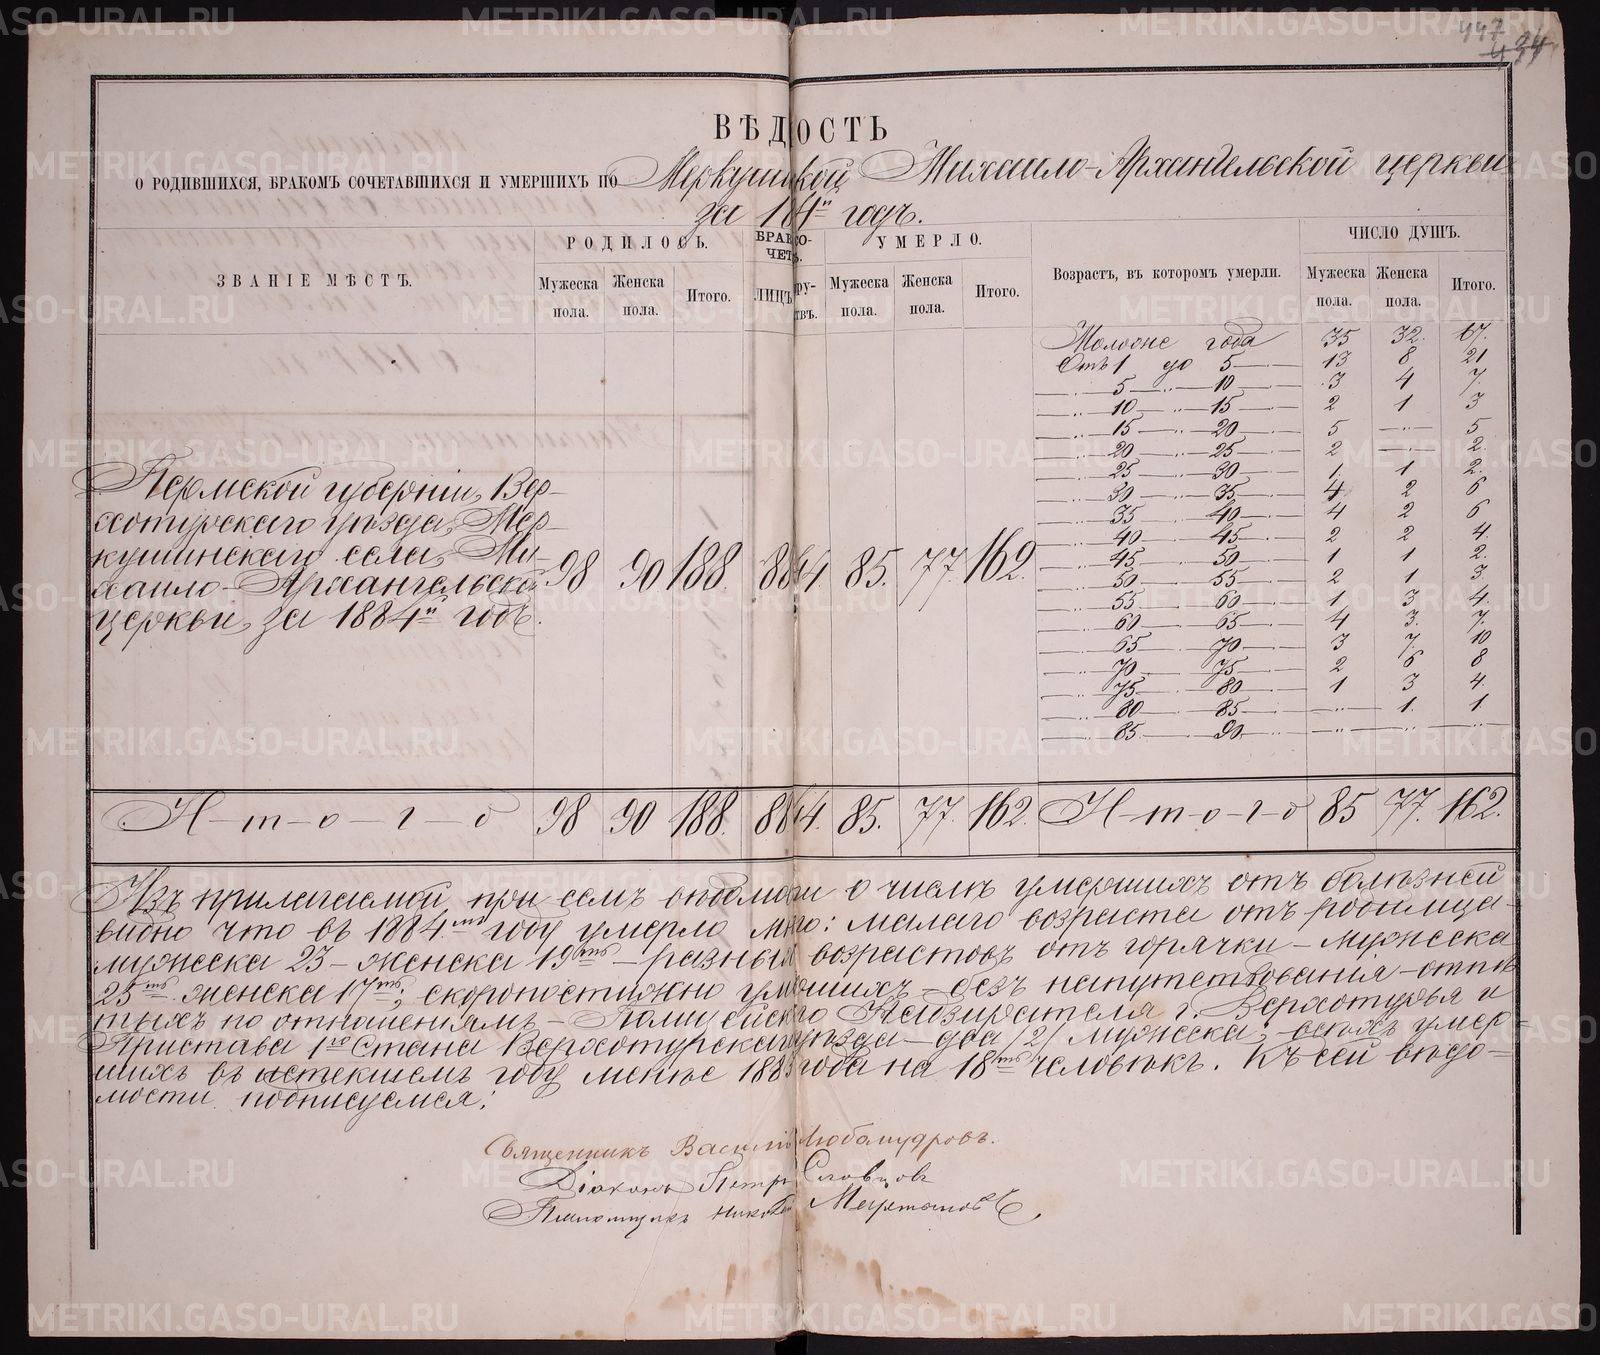 447
434
ВѢДОСТЬ
О РОДИВШИХСЯ, БРАКОМЪ СОЧЕТАВШИХСЯ И УМЕРШИХЪ ПО Меркушиской Михаило-Архангельской церкви
за 184й годъ.
ЗВАНІЕ МѢСТЪ. РОДИЛОСЬ. УМЕРЛО. Возрастъ, въ которомъ умерли. ЧИСЛО ДУШЪ.
Мужеска пола. Женска пола. Итого. ЛИЦЪ Мужеска пола. Женска пола. Итого. Мужеска пола. Женска пола. Итого.
Моложе года 35 32 67.
Отъ 1 до 5 13 8 21
5 10 3 4 7.
10 15 2 1 3
15 20 5 — 5
20 25 2 — 2.
25 30 1 1 2.
30 35 4 2 6
35 40 4 2 6
40 45 2 2 4.
45 50 1 1 2.
50 55 2 1 3.
55 60 1 3 4.
60 65 4 3. 7.
65 70 3 7. 10
70 75 2 6 8
75 80 1 3 4.
80 85 — 1. 1.
85 90 — — —
Пермской губерніи, Вер-
хотурскаго уѣзда, Мер-
кушинскаго села, Ми-
хаило-Архангельской
церкви, за 1884й годъ.
98 90 188. 88 44 85. 77. 162.
И-т-о-г-о 98 90 188. 88 44. 85. 77. 162. И-т-о-г-о 85 77. 162.
Изъ прилагаемой при семъ вѣдомости о числѣ умершихъ отъ болѣзней
видно что въ 1884мъ году умерло много: малаго возраста отъ родимца-
мужеска 23 - женска 19ть - разныхъ возрастовъ отъ горячки - мужеска
25ть женска 17ть; скоропостижно умершихъ - безъ напутствованія - отпѣ
тыхъ по отношеніямъ - Полицейскаго Надзирателя г. Верхотурья и
Пристава 1го Стана Верхотурскаго уѣзда - два /2/ мужеска; всѣхъ умер-
шихъ въ истекшемъ году менѣе 1883 года на 18ть человѣкъ. Къ сей вѣдо-
мости подписуемся:
Священникъ Василій Любомудровъ.
Діаконъ Петръ Словцовъ
Псаломщикъ Николай